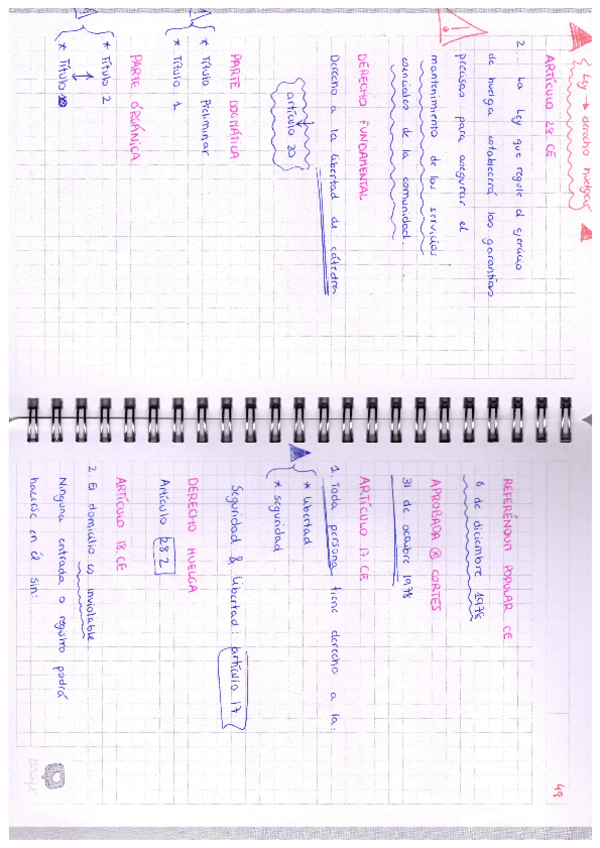 { Ley → derecho huelga }
ARTÍCULO 28 CE
2. La Ley que regule el ejercicio
de huelga establecerá las garantías
precisas para asegurar el
mantenimiento de los servicios
esenciales de la comunidad.
DERECHO FUNDAMENTAL
Derecho a la libertad de cátedra
artículo 20
PARTE DOGMÁTICA
* Título Preliminar
* Título 1
PARTE ORGÁNICA
* Título 2
* Título 10
49
REFERÉNDUM POPULAR CE
6 de diciembre 1978
APROBADA ⊗ CORTES
31 de octubre 1978
ARTÍCULO 17 CE
1. Toda persona tiene derecho a la:
* libertad
* seguridad
Seguridad & libertad: artículo 17
DERECHO HUELGA
Artículo 28.2
ARTÍCULO 18 CE
2. El domicilio es inviolable.
Ninguna entrada o registro podrá
hacerse en él sin: